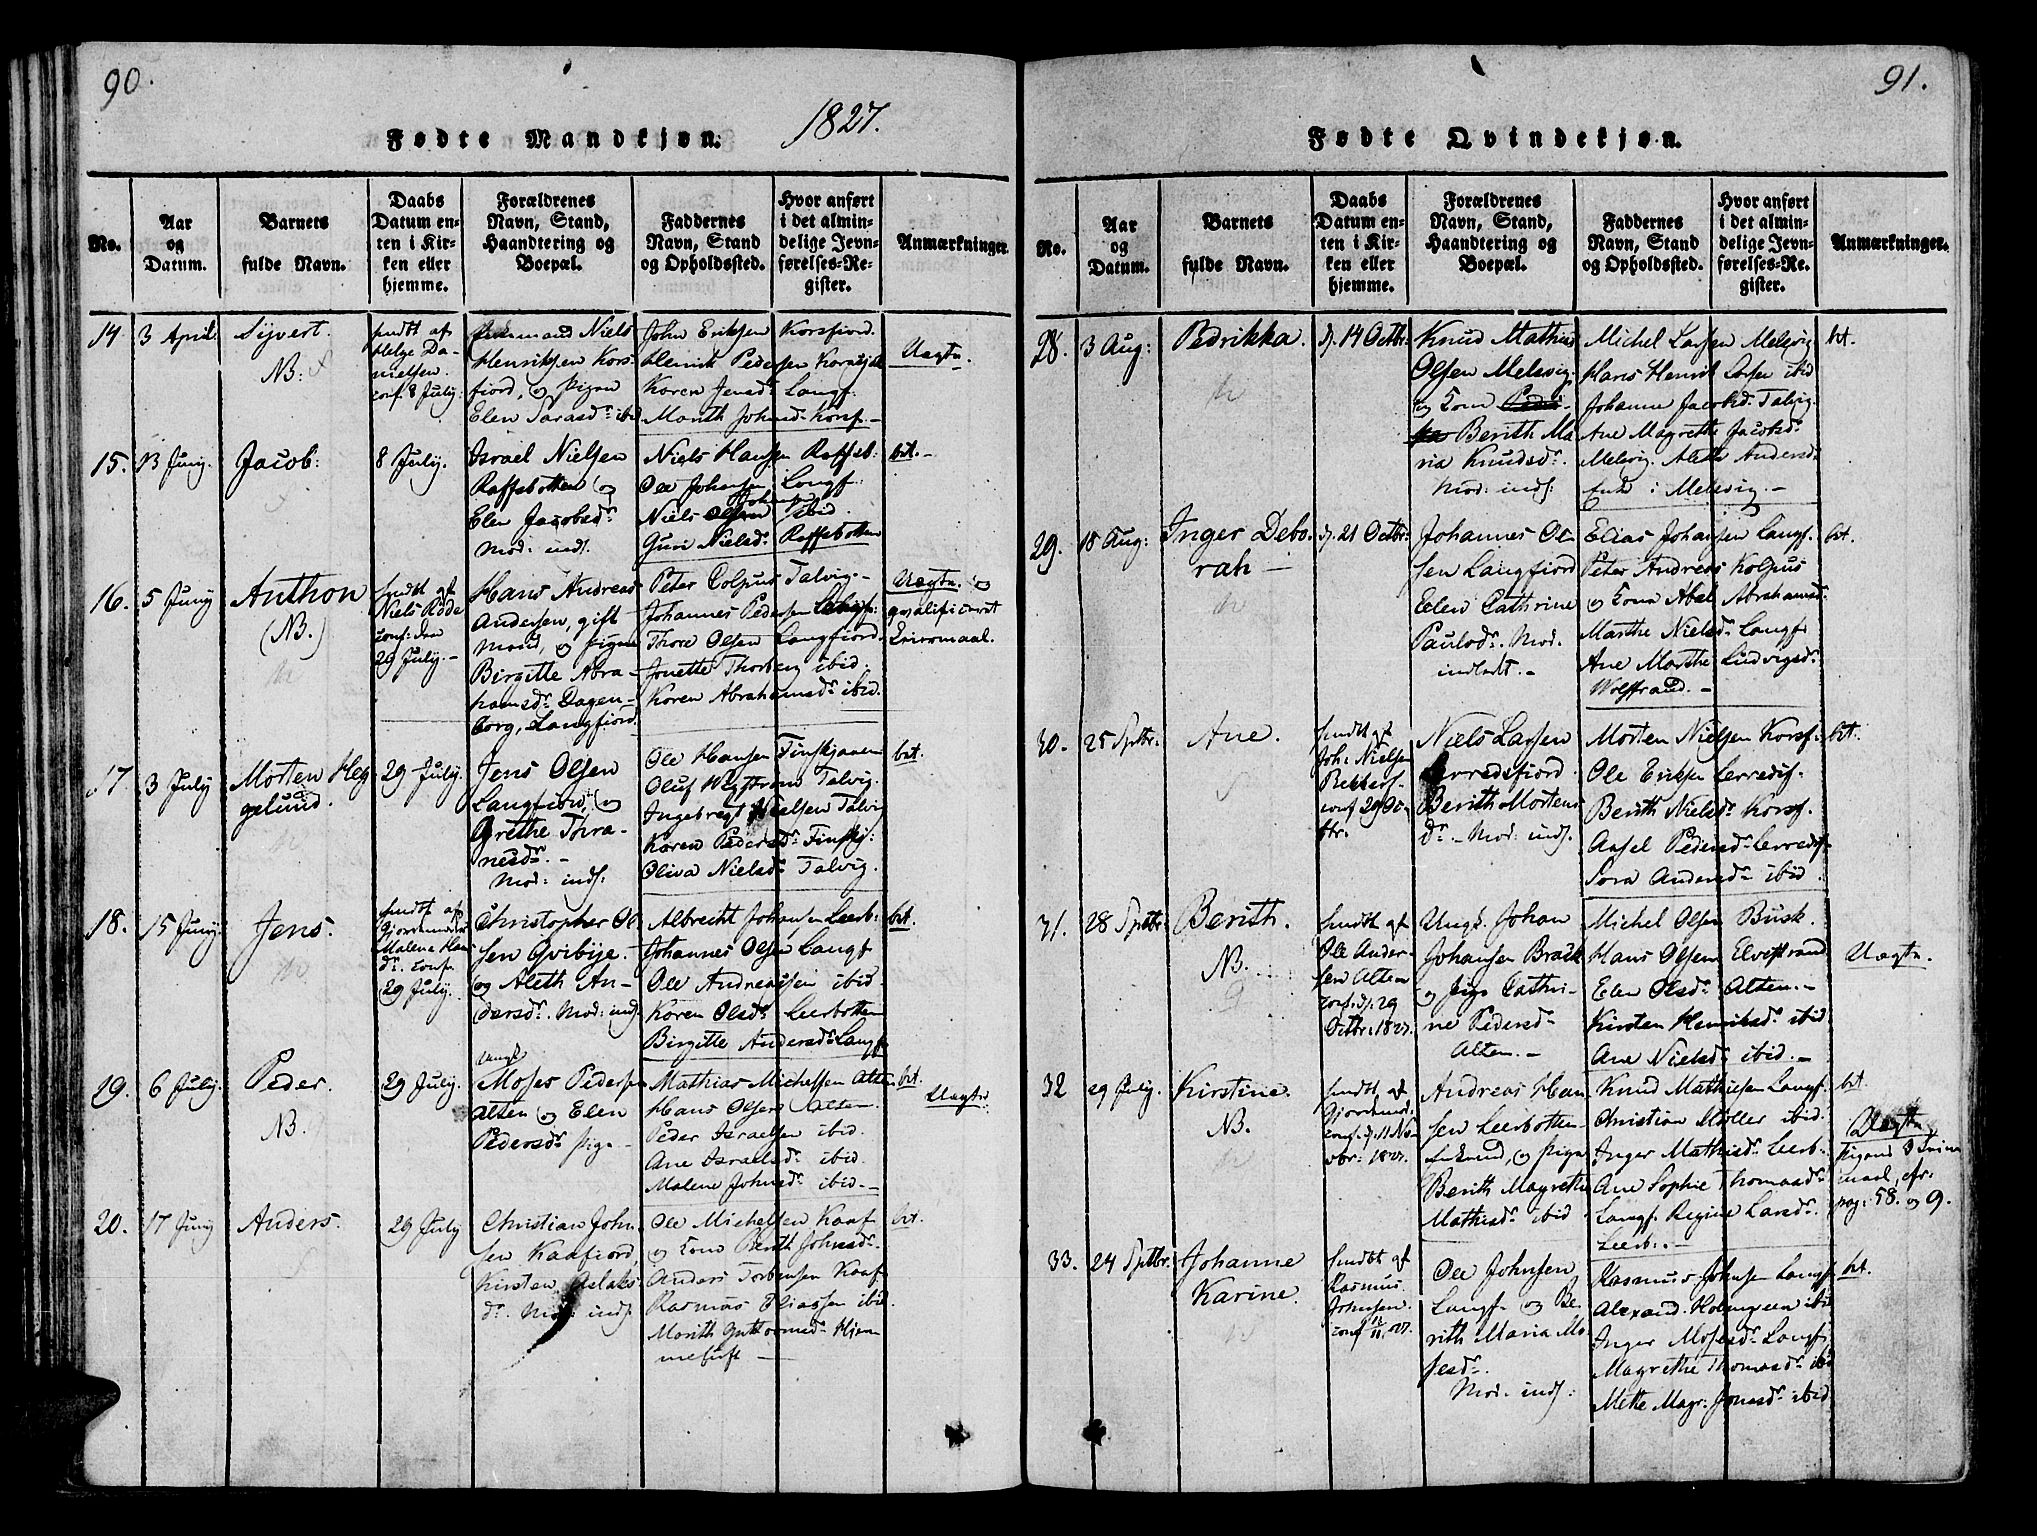 90.
1827.
Fødte Mandkjøn.
No.
Aar
og
Datum.
Barnets
fulde Navn.
Daabs
Datum en-
ten i Kir-
ken eller
hjemme.
Forældrenes
Navn, Stand,
Haandtering og
Boepæl.
Faddernes
Navn, Stand
og Opholdssted.
Hvor anført
i det almin-
delige Jevn-
førelses-Re-
gister.
Anmærkninger.
14
3 April
Sijvert.
NB:
hmdt af
Helge Da-
nielsen.
conf. 8 July.
Niels
Henriksen Kors-
fiord, og Pigen
Elen Sarasdr. ibid
John Eriksen Korsfiord.
Henrik Pedersen Korsfiord
Karen Jensdr. Langf.
Marith Johnsdr. Korsf.
Uægte.
15.
13 Juny.
Jacob.
8 July.
Israel Nielsen
Raffsbotten og
Elen Jacobsdr.
Mod: ind.
Niels Hansen Raffsb:
Ole Johnsen Langf.
Johnsen
Niels Olsen ibid.
Guri Nielsdr. Raffsbotten
bt.
16.
5 Juny
Anthon
(NB.)
hmdt af
Niels Rode
conf: den
29 July.
Hans Andreas
Andersen, gift
Mand, og Pigen
Birgitte Abra-
hamsdr. Dagen-
borg, Langfiord.
Peter Colpus Talvig.
Johannes Pedersen
Thore Olsen Langfiord.
Jonette Thorberg ibid.
Karen Abrahamsdr. ibid.
Uægte. og
qvalificeret
Leiermaal.
17
3 July
Morten Heg
gelund.
29 July.
Jens Olsen
Langfiord, og
Grethe Thra-
nesdr.
Mod: inds:
Ole Hansen Finskjaaen
Oluf Wigstrøm Talvig.
Ingebregt Nielsen Talvig
Karen Pedersdr. Finskj:
Oliva Nielsdr. Talvig.
bt.
18.
15 Juny
Jens.
hmdt af
Gjordemoder
Malene Hans
dr. conf.
29 July.
Christopher Ol
sen Qvibye.
og Aleth An-
dersdr. Mod: ind.
Albrecht Johansen Leerb:
Johannes Olsen Langf
Ole Andreassen ibid.
Karen Olsdr. Leerbotten
Birgitte Andersdr. Langf
bt.
19.
6 July.
Peder.
NB.
29 July.
Ungk.
Moses Pedersen
Alten og Elen
Pedersdr. Pige
Mathias Michelsen Alten
Hans Olsen Alten.
Peder Israelsen ibid.
Ane Israelsdr. ibid.
Malene Johnsdr. ibid.
bt.
Uægte.
20.
17 Juny
Anders.
29 July
Christian John
sen Kaafiord,
Kirsten Aslaks
dr. Mod: inds
Ole Michelsen Kaaf
og Kone Berith Johnsdr.
Anders Torbensen Kaaf
Rasmus Eliassen ibid
Marith Guttormsdr. Hjem
meluft
bt.
91.
Fødte Qvindekjøn.
No.
Aar
og
Datum.
Barnets
fulde Navn.
Daabs
Datum en-
ten i Kir-
ken eller
hjemme.
Forældrenes
Navn, Stand,
Haandtering og
Boepæl.
Faddernes
Navn, Stand
og Opholdssted.
Hvor anført
i det almin-
delige Jevn-
førelses-Re-
gister.
Anmærkninger.
28.
3 Aug:
Pedrikka.
d. 14 Octbr.
Knud Mathias
Olsen Melsvig
og Kone
Berith Ma
ria Knudsdr.
Mod: inds:
Michel Larsen Melsvig
Hans Henrik Larsen ibid
Johanne Jacobsd. Talvig.
Ane Magrethe Jacobsdr.
Melsvig. Aleth Andersd.
Enke i Melsvig.
bt.
29.
18 Aug:
Inger Debo-
rah
d. 21 Octbr:
Johannes Ol
sen Langfiord
Elen Cathrine
Paulsdr. Mod.
indledt.
Elias Johansen Langf.
Peter Andreas Kolpus
og Kone Abel Abrahamsd.
Marthe Nielsdr. Langf.
Ane Marthe Ludvigsdr.
Wolstrand.
bt.
30.
25 Sptbr.
Ane.
hmdt af
Joh: Nielsen
Rekkerf
conf 29 Oc-
tbr.
Niels Larsen
Lerredsfiord.
Berith Mortens
dr. Mod: inds.
Morten Nielsen Korsf.
Ole Eriksen Lerredsf.
Berith Nielsdr. Korsf.
Ansel Pedersdr. Lerredsf
Sara Andersdr. ibid.
bt.
31.
28 Sptbr.
Berith.
NB.
hmdt af
Ole Ander-
sen Alten
conf. d. 29
Octbr: 1827.
Ungk. Johan
Johansen Bræk
og Pige Cathri-
ne Pedersdr.
Alten.
Michel Olsen Busk.
Hans Olsen Elvestrand
Elen Olsdr. Alten.
Kirsten Henriksdr. ibid
Ane Nielsdr. ibid.
Uægte.
32
29 July.
Kirstine.
NB.
hmdt af
Gjordemd.
conf. d. 11 No
vbr: 1827.
Andreas Han
sen Leerbotten
og Pigen
Berith Magrethe
Mathisdr. ibid
Knud Mathiesen Langf.
Christian Møller ibid.
Inger Mathisdr. Leerb.
Ane Sophie Thomasdr.
Langf. Regine Larsdr.
Leerb.
bt.
Uægte
Pigens 3
maal, cfr.
pag: 58. og 9.
33.
24 Sptbr.
Johanne
Karine.
hmdt af
Rasmus
Johnsen.
conf 11/11 27.
Ole Johnsen
Langf. og Be
rith Maria Mo
sesdr.
Mod: inds:
Rasmus Johnsen Langf
Alexand. Holmgreen ibid
Inger Mosesdr. Langf
Magrethe Thomasdr. ibid
Mette Magr: Jonasdr. ibid
bt.